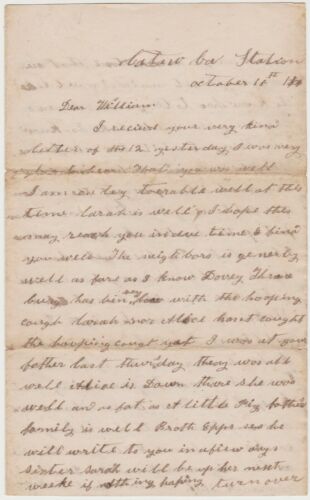 Station
october 16st
Dear William
I recievd your very kind
letter of the 12 yesterday I was very
glad to hear that you was well
I am only toerable well at this
time Sarah is well & I hope this
may reach you in due time & find
you well The neighbors is generly
well as fare as I know Dovey
has bin very low with the hooping
cough Sarah nor Alice hant caught
the hooping cough yet I was at your
father last thursday theay was all
well Alice is Down thare she was
well and as fat as a little Pig
family is well Broth Epps ses he
will write to you in a few days
Sister Sarah will be up her next
weeke if nothing hapins turn over